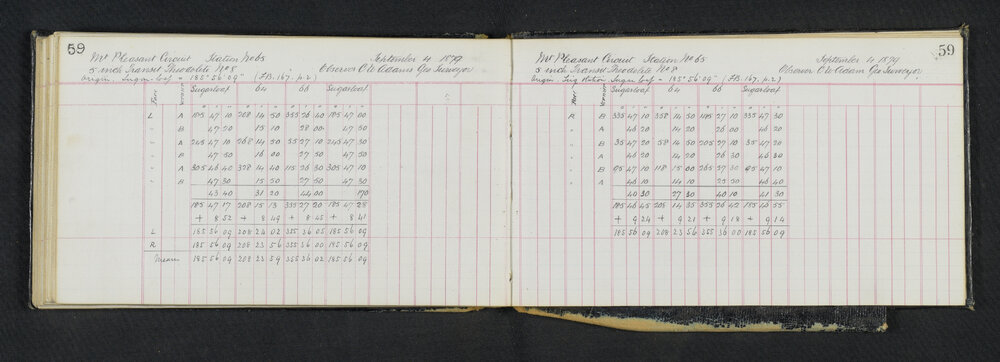 59
Mt Pleasant Circuit Station No 65 September 4 1879
5 inch Transit Theodolite No 8 Observer C W Adams Geo Surveyor
Origin, Sugar-loaf = 185° 56' 09" (F.B. 167. p. 2)
Face Vernier Sugarloaf 64 66 Sugarloaf
L A 185 47 10 208 14 50 355 26 40 185 47 00
" B 47 20 15 10 28 00 47 50
" A 245 47 10 268 14 50 55 27 10 245 47 30
" B 47 50 16 00 27 50 47 50
" A 305 46 40 328 14 40 115 26 30 305 47 10
" B 47 30 15 50 27 50 47 30
43 40 31 20 44 00 170
185 47 17 208 15 13 355 27 20 185 47 28
+ 8 52 + 8 49 + 8 45 + 8 41
L 185 56 09 208 24 02 355 36 05 185 56 09
R 185 56 09 208 23 56 355 36 00 185 56 09
Mean 185 56 09 208 23 59 355 36 02 185 56 09
59
Mt Pleasant Circuit Station No 65 September 4 1879
5 inch Transit Theodolite No 8 Observer C W Adams Geo Surveyor
Origin Trig Station Sugar loaf = 185° 56' 09" (F.B. 167. p. 2)
Face Vernier Sugarloaf 64 66 Sugarloaf
R B 335 47 10 358 14 30 145 27 10 335 47 30
" A 46 20 14 20 26 00 46 20
" B 35 47 20 58 14 50 205 27 10 35 47 20
" A 46 20 14 20 26 30 46 20
" B 95 47 10 118 15 00 265 27 30 95 47 10
" A 46 10 14 10 25 50 46 40
40 30 27 30 40 10 41 30
185 46 45 208 14 35 355 26 42 185 46 55
+ 9 24 + 9 21 + 9 18 + 9 14
185 56 09 208 23 56 355 36 00 185 56 09